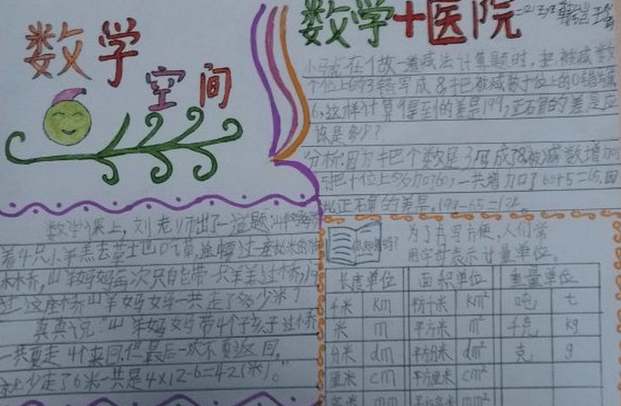 数学
空间
数学+医院
小马虎在做一道减法计算题时,把被减数
个位上的3错写成8,把被减数十位上的0错写成
6,这样计算得到的差是199,正确的差应
该是多少?
分析:因为把个数是3写成8被减数增加
5,把十位上0 60,一共增加了60+5=65,因
此正确的差是,199-65=134。
数学课上,刘老师出了一道题:山羊
着4只小羊羔去草土也吃草,途中要过一座 米的
木桥,山羊妈妈每次只能带一只羊羔过桥,
过这座桥山羊妈妈一共走了多少米?
真真说:山羊妈妈带4个孩子过桥
一共要走4个来回,但最后一次不要返回,
就少走了6米一共是4×12-6=42(米)。
你知道吗?
为了书写方便,人们常
用字母表示计量单位。
长度单位 面积单位 重量单位
千米 km 平方千米 km² 吨 t
米 m 平方米 m² 千克 kg
分米 dm 平方分米 dm² 克 g
厘米 cm 平方厘米 cm²
毫米 mm 平方毫米 mm²